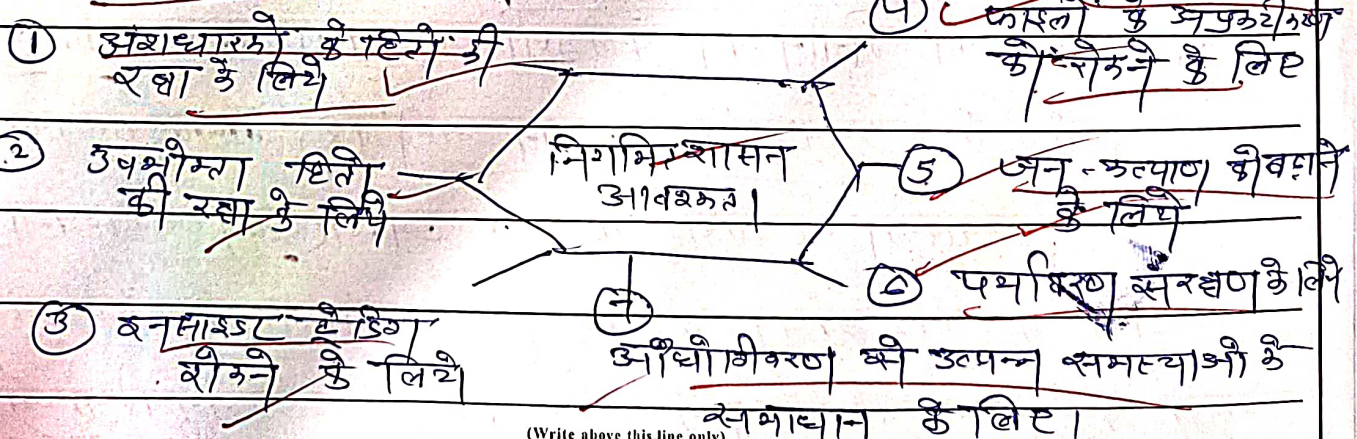 ① अंशधारको के हितों की
रक्षा के लिये
② उपभोक्ता हितो
की रक्षा के लिये
③ इनसाइडर ट्रेडिंग
रोकने के लिये
निगमित शासन
आवश्कता
④ फाइलो के अप्रकटीकरण
को रोकने के लिए
⑤ जन-कल्याण को बढ़ाने
के लिये
⑥ पर्यावरण संरक्षण के लिये
⑦
औधोगीकरण से उत्पन्न समस्याओ के
समाधान के लिए।
(Write above this line only)